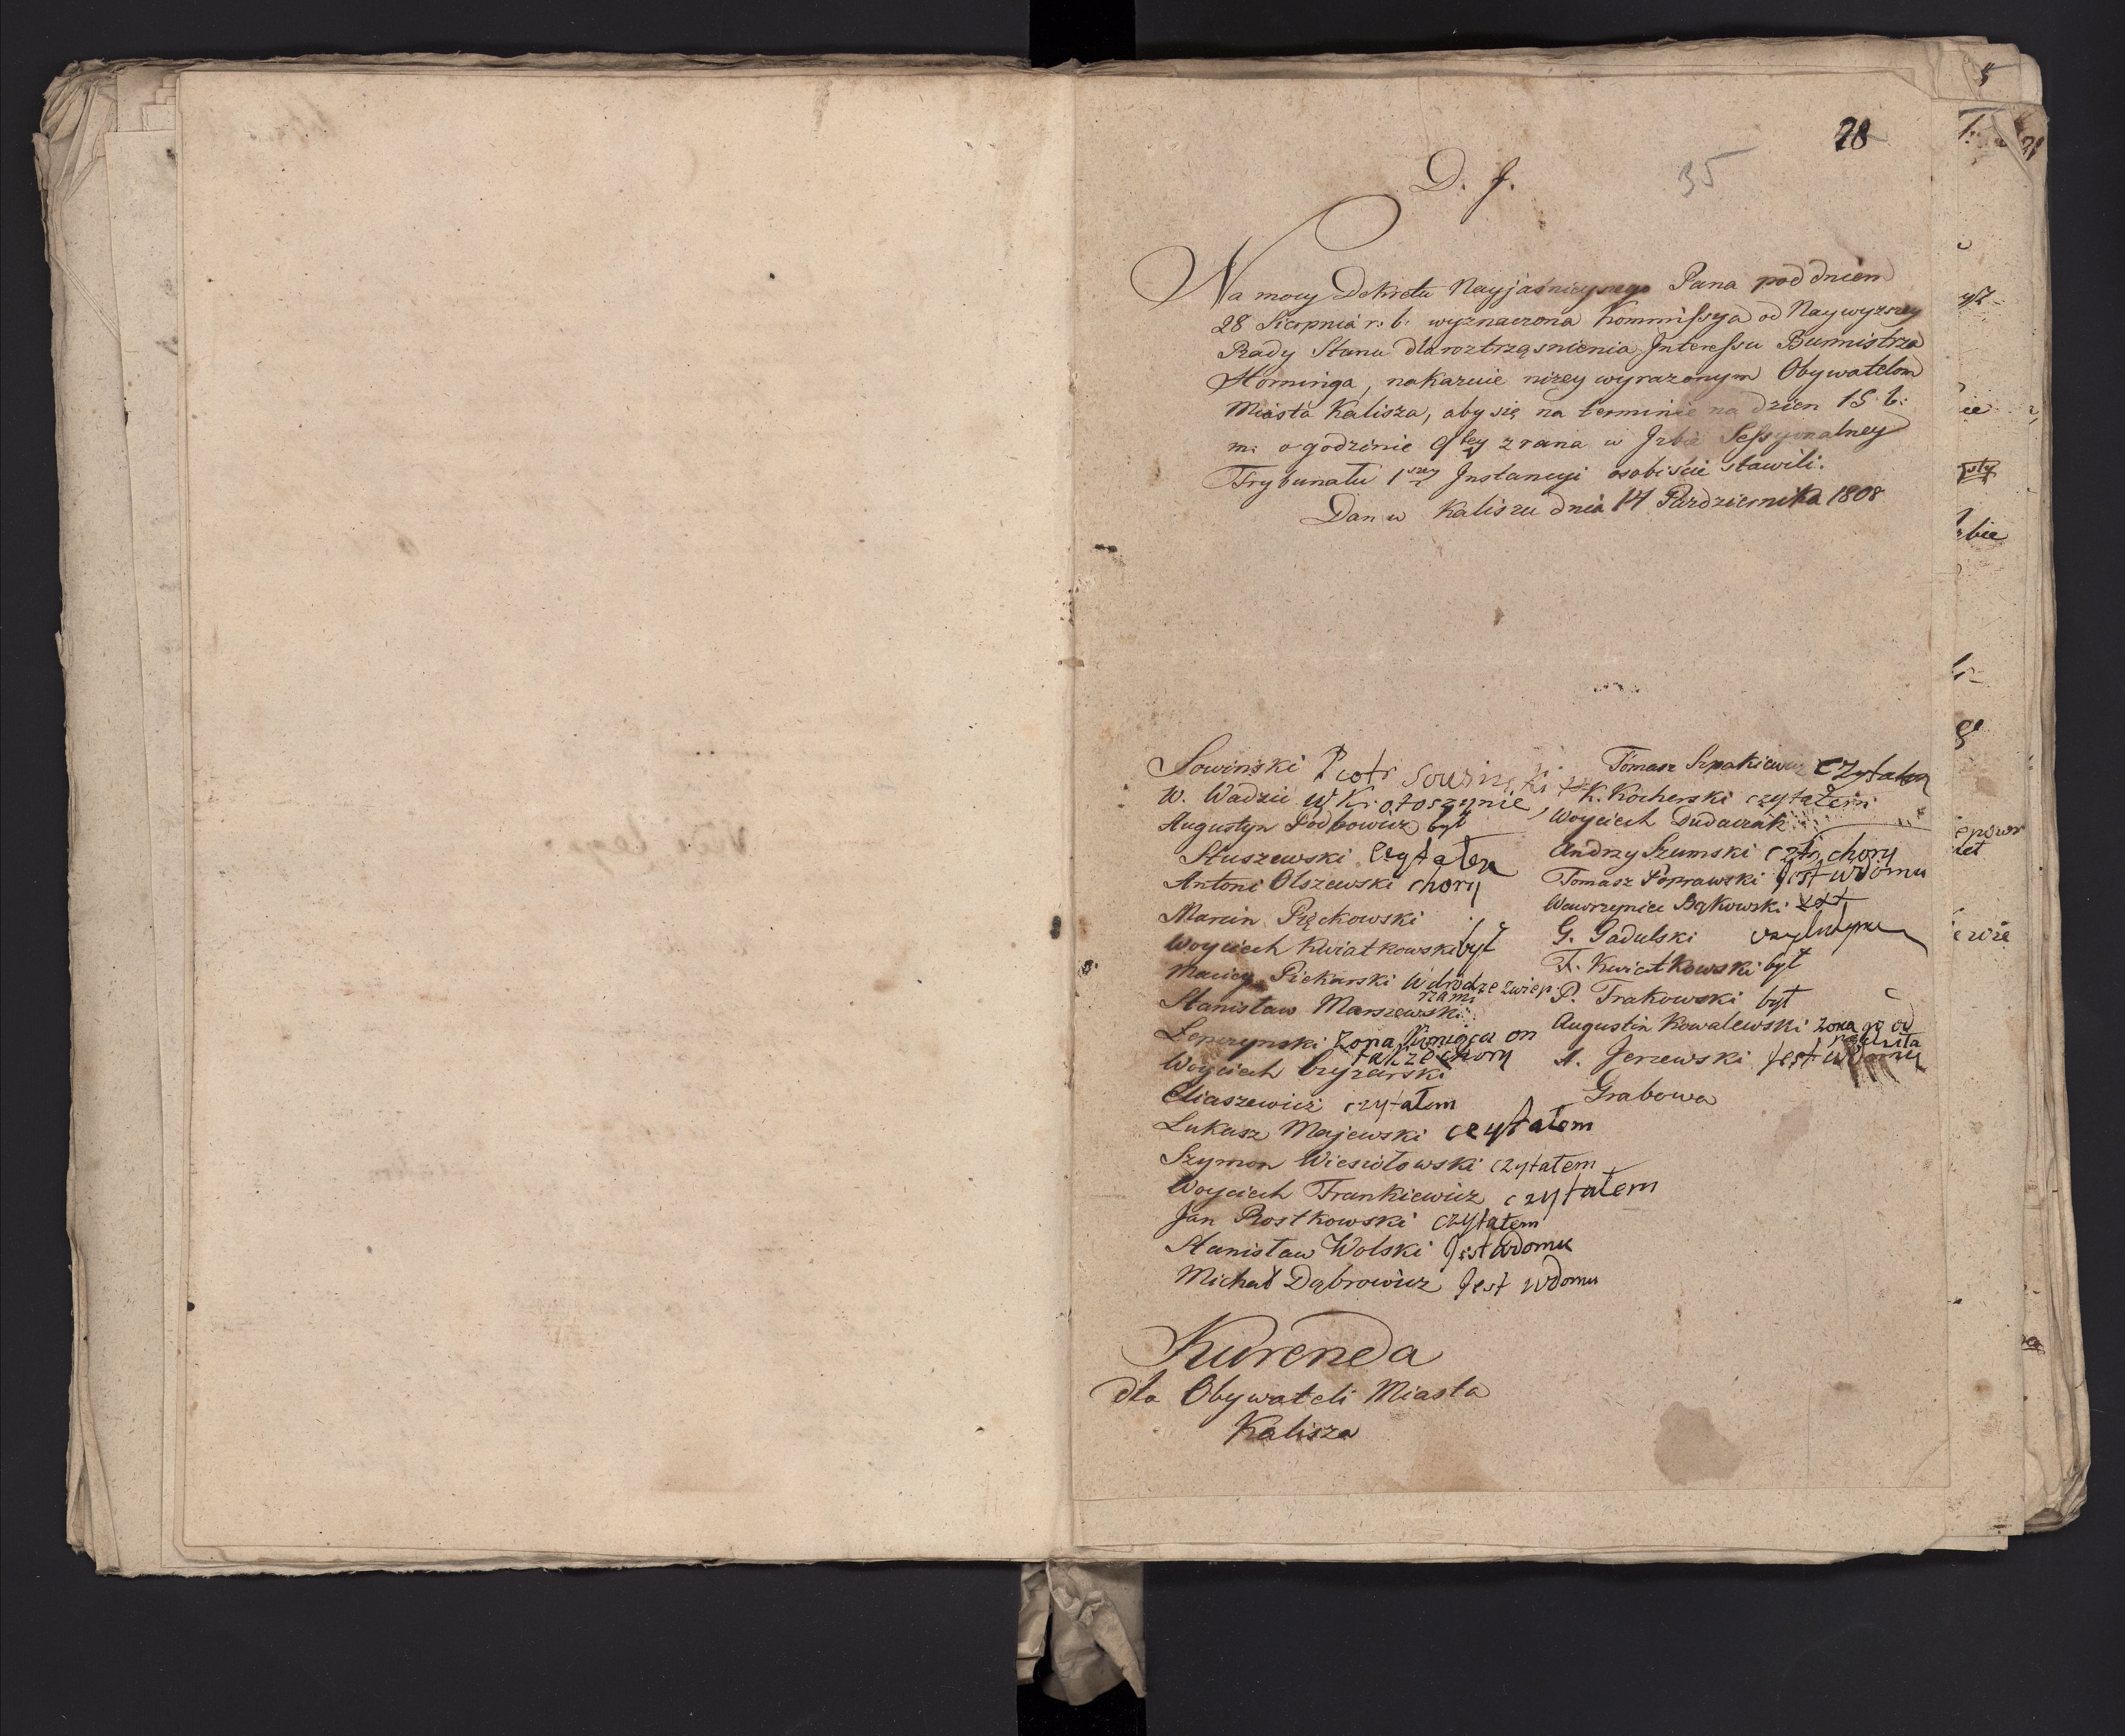 28
35
D. J.
Na mocy Dekretu Nayjaśnieyszego Pana pod dniem
28 Sierpnia r. b. wyznaczona Kommissya od Naywyzszey
Rady Stanu dla roztrząsnienia Interessu Burmistrza
Horninga, nakazuie nizey wyrazonym Obywatelom
Miasta Kalisza, aby się na terminie na dzien 15 b:
m: o godzinie 9tey zrana w Izbie Sessyonalney
Trybunału 1szey Instancyi osobiście stawili.
Dan w Kaliszu dnia 14 Pazdziernika 1808
Sowiński Piotr Sowinski
W. Wadzic w Krotoszynie
Augustyn Podkowicz był
Stuszewski czytałem
Antoni Olszewski chory
Marcin Pięckowski
Woyciech Kwiatkowski był
Maciey Piekarski w drodze zwiep
rzami
Stanisław Marszewski
Lepczynski zona on
takze chory
Woyciech
Eliaszewicz czytałem
Łukasz Majewski czytałem
Szymon Wiesiołowski czytałem
Woyciech Frankiewicz czytałem
Jan Rostkowski czytałem
Stanisław Wolski Jest wdomu
Michał Dąbrowicz Jest wdomu
Tomasz Szpakiewicz czytałem
K. Kocherski czytałem
Woyciech Dudaczak
Andrzy Szumski chory
Tomasz Poprawski Jest wdomu
Wawrzyniec Bąkowski
G. Gadulski
F. Kwiatkowski był
P. Trakowski był
Augustin Kowalewski zona go od
A. Jerzewski Jest wdomu
Grabowa
Kurenda
dla Obywateli Miasta
Kalisza